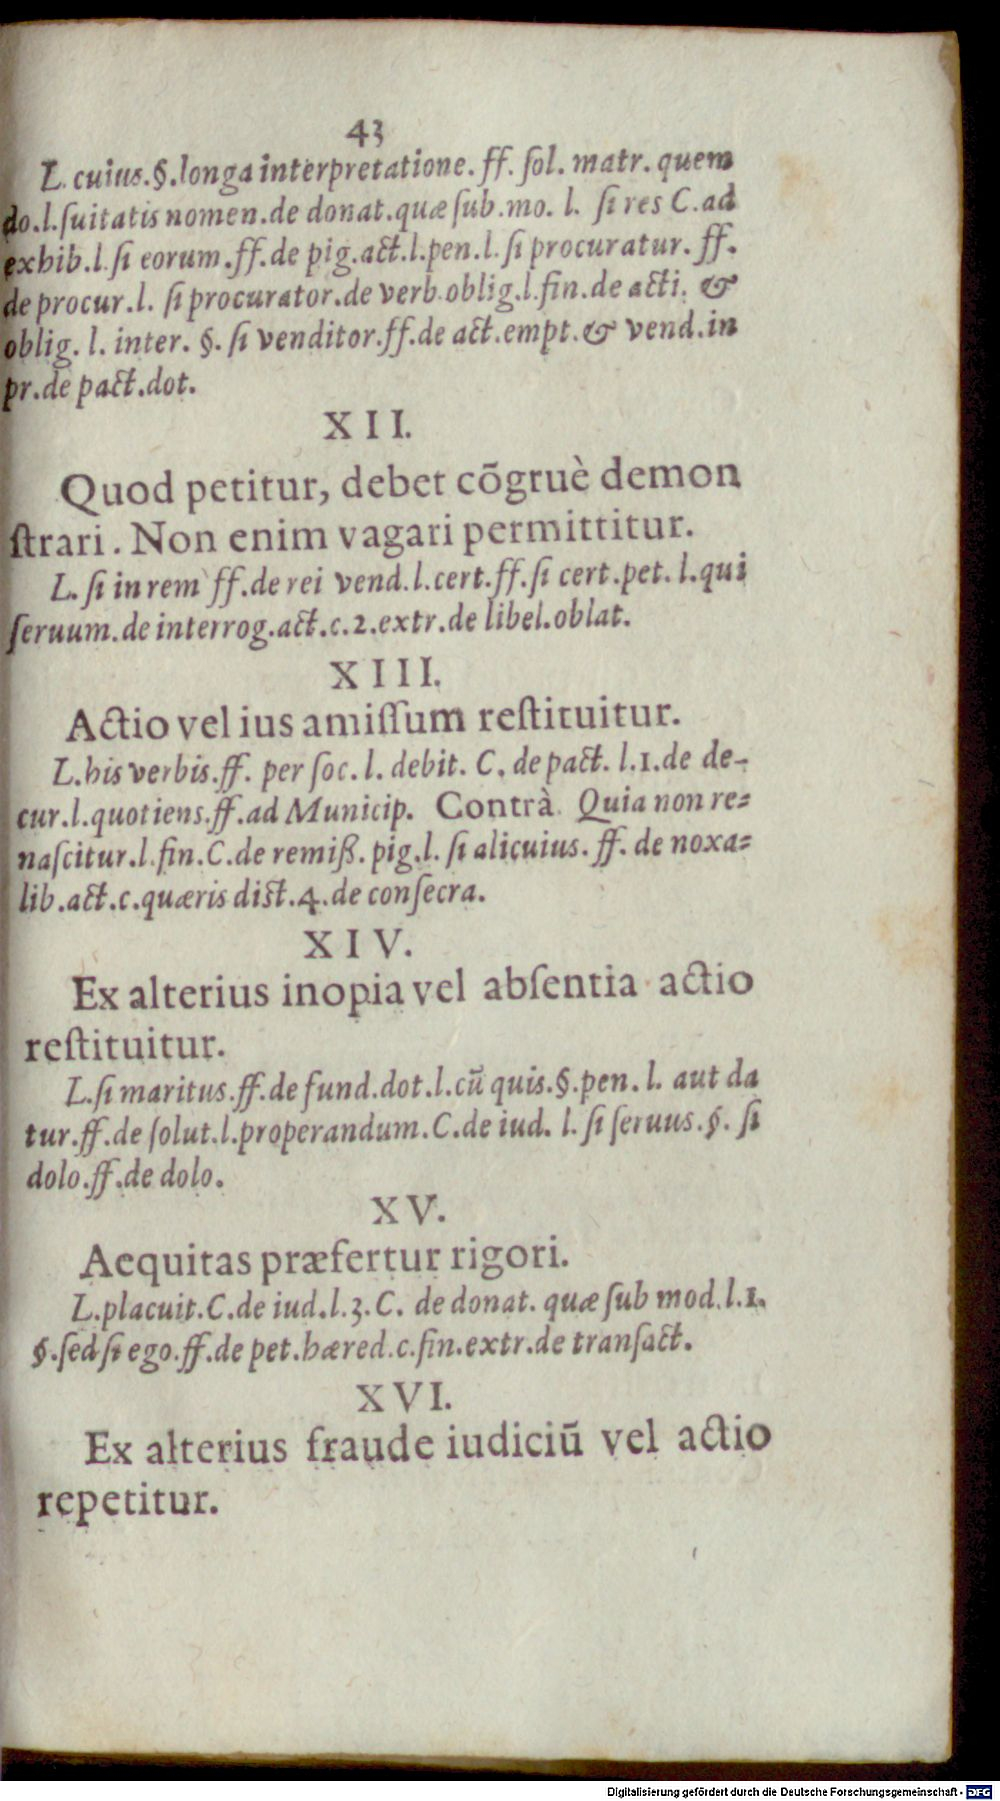 43
L. cuius.§.longa interpretatione. ff. ſol. matr. quem
do.l.ſuitatis nomen.de donat.quæ ſub.mo. l. ſi res C.ad
exhib.l.ſi eorum.ff.de pig.act.l.pen.l. ſi procuratur. ff.
de procur.l. ſi procurator.de verb.oblig.l.fin.de acti. &
oblig. l. inter. §. ſi venditor.ff.de act.empt.& vend.in
pr.de pact.dot.
XII.
Quod petitur, debet cõgruè demon
ſtrari. Non enim vagari permittitur.
L. ſi in rem ff.de rei vend.l.cert.ff.ſi cert.pet. l.qui
ſeruum.de interrog.act.c.2.extr.de libel.oblat.
XIII.
Actio vel ius amiſſum reſtituitur.
L.his verbis.ff. per ſoc. l. debit. C. de pact. l.1.de de-
cur.l.quotiens.ff.ad Municip. Contrà Quia non re-
naſcitur.l.fin.C.de remiß. pig.l. ſi alicuius. ff. de noxa-
lib.act.c.quæris diſt.4.de conſecra.
XIV.
Ex alterius inopia vel abſentia actio
reſtituitur.
L.ſi maritus.ff.de fund.dot.l.cũ quis.§.pen. l. aut da
tur.ff.de ſolut.l.properandum.C.de iud. l. ſi ſeruus.§. ſi
dolo.ff.de dolo.
XV.
Aequitas præfertur rigori.
L.placuit.C.de iud.l.3.C. de donat. quæ ſub mod.l.1.
§.ſed ſi ego.ff.de pet.hæred.c.fin.extr.de tranſact.
XVI.
Ex alterius fraude iudiciũ vel actio
repetitur.
Digitalisierung gefördert durch die Deutsche Forschungsgemeinschaft - DFG